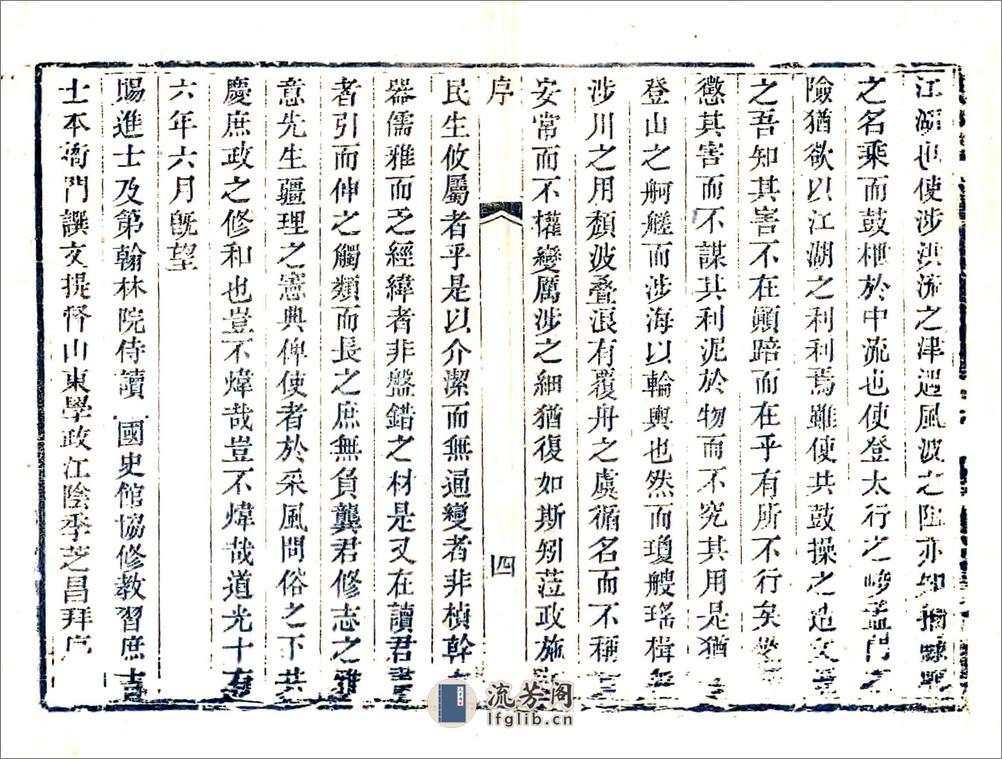 江湖也使涉洪流之津遇風波之阻亦知捐
之名乘而鼓枻於中流也使登太行之峻孟門之
險猶欲以江湖之利利焉雖使共鼓操之造父
之吾知其害不在顛踣而在乎有所不行矣
懲其害而不謀其利泥於物而不究其用是猶
登山之舸艖而涉海以輪輿也然而瓊艘瑤楫無
涉川之用頹波叠浪有覆舟之虞循名而不稱
安常而不權變厲涉之細猶復如斯矧蒞政施
序
四
民生攸屬者乎是以介潔而無通變者非楨幹
器儒雅而乏經緯者非盤錯之材是又在讀君書
者引而伸之觸類而長之庶無負龔君修志之雅
意先生疆理之憲典俾使者於采風問俗之下共
慶庶政之修和也豈不煒哉豈不煒哉道光十有
六年六月旣望
賜進士及第翰林院侍讀 國史館協修教習庶吉
士本衙門譔文提督山東學政江陰季芝昌拜序
流芳阁
lfglib.cn